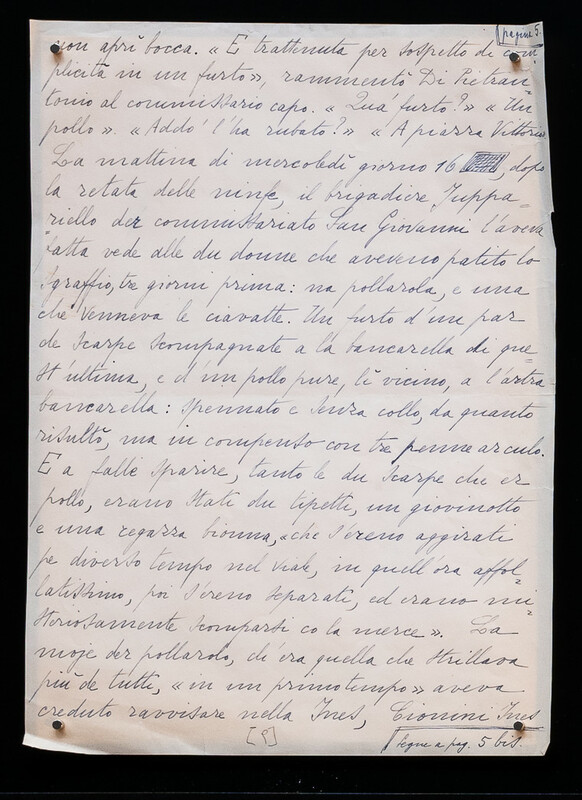 pagina 5.
non aprì bocca. « È trattenuta per sospetto di com-
plicità in un furto», rammentò Di Pietran-
tonio al commissario capo. « Qua furto? » « Un
pollo ». « Addó l'ha rubato? » « A piazza Vittorio
La mattina di mercoledì giorno 16 dopo
la retata delle ninfe, il brigadiere Juppa-
riello der commissariato San Giovanni l'aveva
fatta vede alle du donne che aveveno patito lo
sgraffio, tre giorni prima: na pollarola, e una
che venneva le ciavatte. Un furto d'un par
de scarpe scompagnate a la bancarella di que-
st'ultima, e d'un pollo pure, lì vicino, a l'artra
bancarella: spennato e senza collo, da quanto
risultò, ma in compenso con tre penne ar culo.
E a falle sparire, tanto le du scarpe che er
pollo, erano stati du tipetti, un giovinotto
e una regazza bionna, «che s'ereno aggirati
pe diverso tempo nel viale, in quell'ora affol-
latissimo, poi s'ereno separati, ed erano mi-
steriosamente scomparsi co la merce ». La
moje der pollarolo, ch'era quella che strillava
più de tutti, « in un primo tempo » aveva
creduto ravvisare nella Ines, Cionini Ines
[5]
segue a pag. 5 bis.